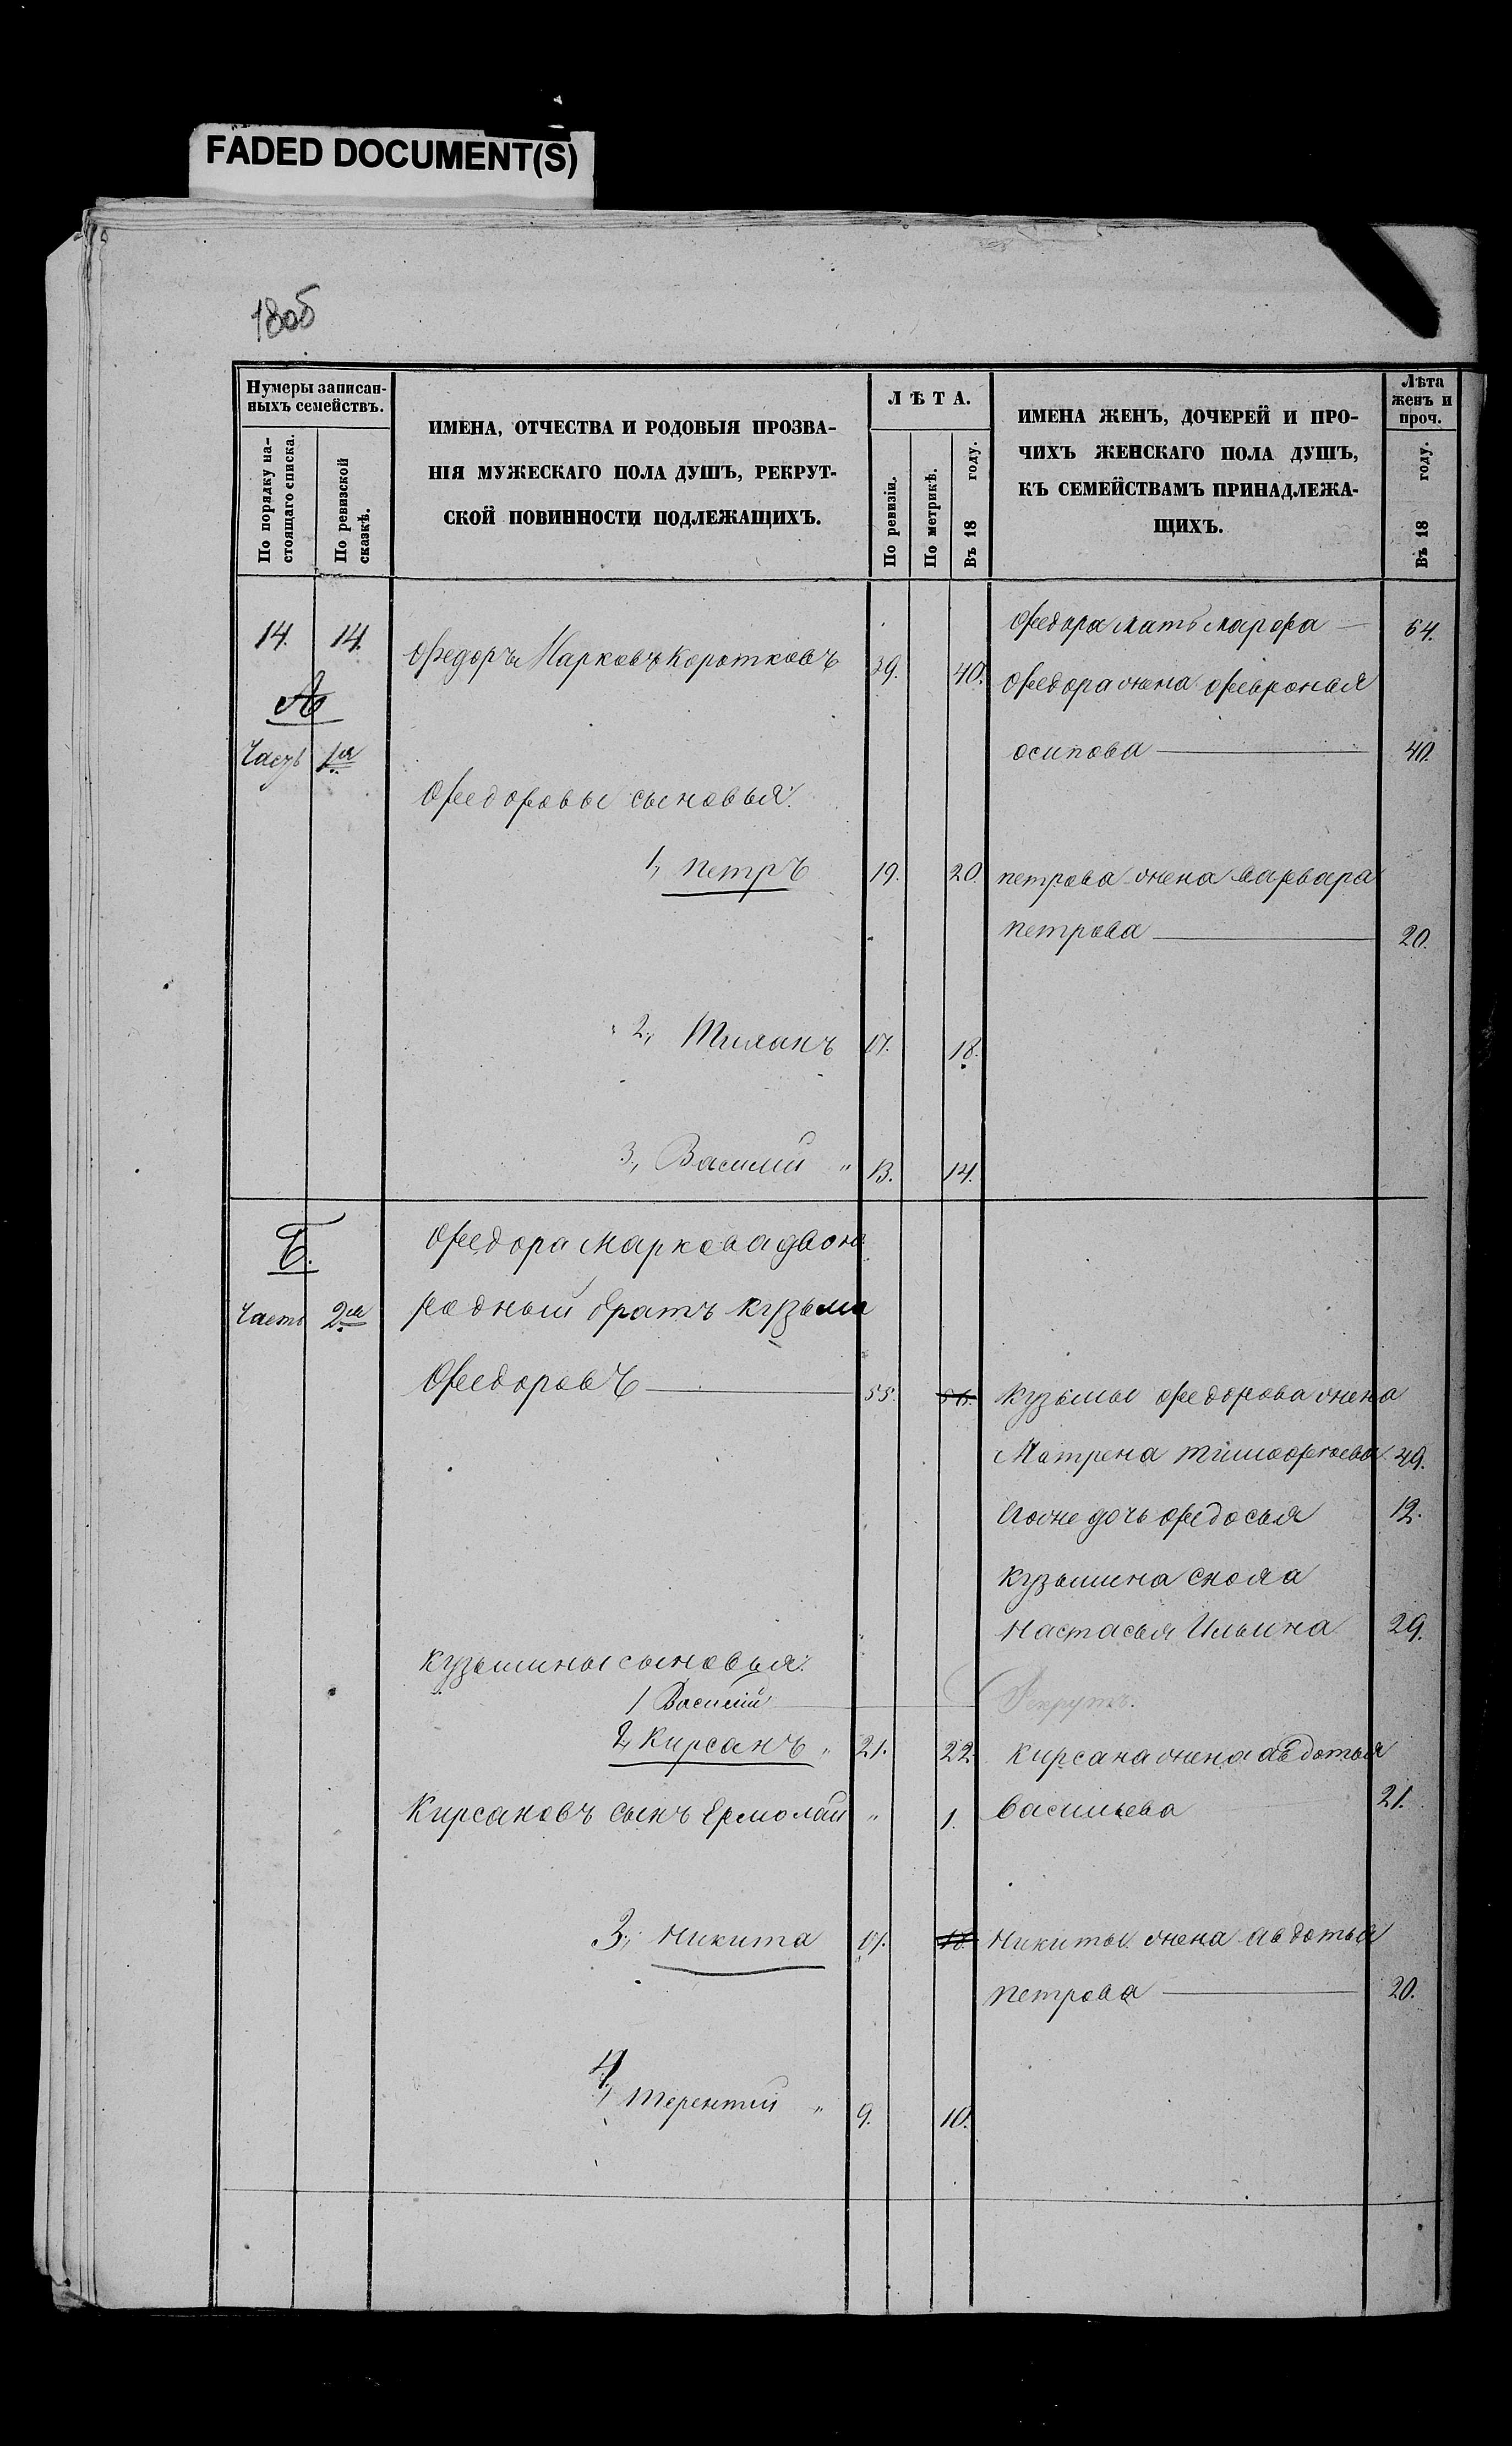 FADED DOCUMENT(S)
1805
Нумеры записан-
ныхъ семействъ.
По порядку на-
стоящаго списка.
По ревизской
сказкѣ.
ИМЕНА, ОТЧЕСТВА И РОДОВЫЯ ПРОЗВА-
НІЯ МУЖЕСКАГО ПОЛА ДУШЪ, РЕКРУТ-
СКОЙ ПОВИННОСТИ ПОДЛЕЖАЩИХЪ.
ЛѢТА.
По ревизіи.
По метрикѣ.
Въ 18 году.
ИМЕНА ЖЕНЪ, ДОЧЕРЕЙ И ПРО-
ЧИХЪ ЖЕНСКАГО ПОЛА ДУШЪ,
КЪ СЕМЕЙСТВАМЪ ПРИНАДЛЕЖА-
ЩИХЪ.
Лѣта
женъ и
проч.
Въ 18 году.
Федора мать Марфа — 64.
14. 14. Федоръ Марковъ Коротковъ 39. 40.
А
Федора жена Февронья
Часть 1я осипова — 40.
Федоровы сыновья:
1, петръ 19. 20. петрова жена варвара
петрова — 20.
2, 17. 18.
3, Василій " 13. 14.
Б.
Федора Маркова двою
Часть 2я родный братъ кузьма
Федоровъ — 55. 56. Кузьмы федорова жена
Матрена тимофеева 49.
дочь федосья 12.
кузьмина сноха
Настасья Ильина 29.
кузьмины сыновья:
1 Василій Рекрутъ.
2, Кирсанъ " 21. 22. Кирсана жена авдотья
Кирсановъ сынъ Ермолай " 1. васильева 21.
3, Никита 17. 18. Никиты жена авдотья
петрова — 20.
4, терентій " 9. 10.